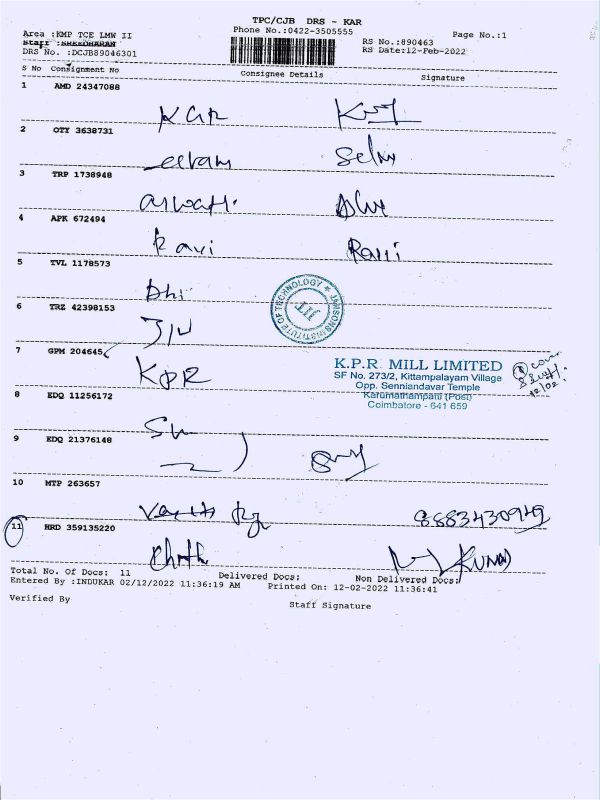 TPC/CJB DRS - KAR
Area :KMP TCE LMW II
Phone No.:0422-3505555
Page No.:1
Staff :SREEDHARAN
RS No.:890463
DRS No. :DCJB89046301
RS Date:12-Feb-2022
S No Consignment No Consignee Details Signature
1 AMD 24347088
KGR
2 OTY 3638731
Selvi
3 TRP 1738948
aswathi
4 APK 672494
Ravi Ravi
5 TVL 1178573
Dhi
JANSONS INSTITUTE OF TECHNOLOGY
JIT
6 TRZ 42398153
JIU
7 GPM 204645
KPR
K.P.R. MILL LIMITED
SF No. 273/2, Kittampalayam Village
Opp. Senniandavar Temple
Karumathampatti (Post)
Coimbatore - 641 659
① cover
12/02
8 EDQ 11256172
9 EDQ 21376148
10 MTP 263657
8883430949
11 HRD 359135220
KUMAR
Total No. Of Docs: 11 Delivered Docs: Non Delivered Docs:
Entered By :INDUKAR 02/12/2022 11:36:19 AM Printed On: 12-02-2022 11:36:41
Verified By
Staff Signature